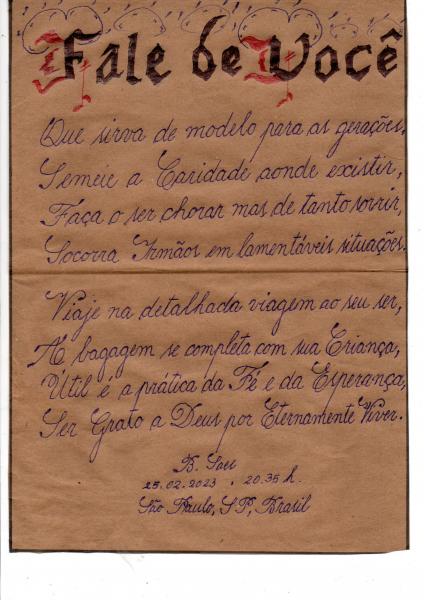 Fale de Você
Que sirva de modelo para as gerações.
Semeie a Caridade aonde existir,
Faça o ser chorar mas de tanto sorrir,
Socorra Irmãos em lamentáveis situações.
Viaje na detalhada viagem ao seu ser,
A bagagem se completa com sua Criança,
Útil é a prática da Fé e da Esperança,
Ser Grato a Deus por Eternamente Viver.
B.
25.02.2023 . 20.35 h.
São Paulo, SP, Brasil